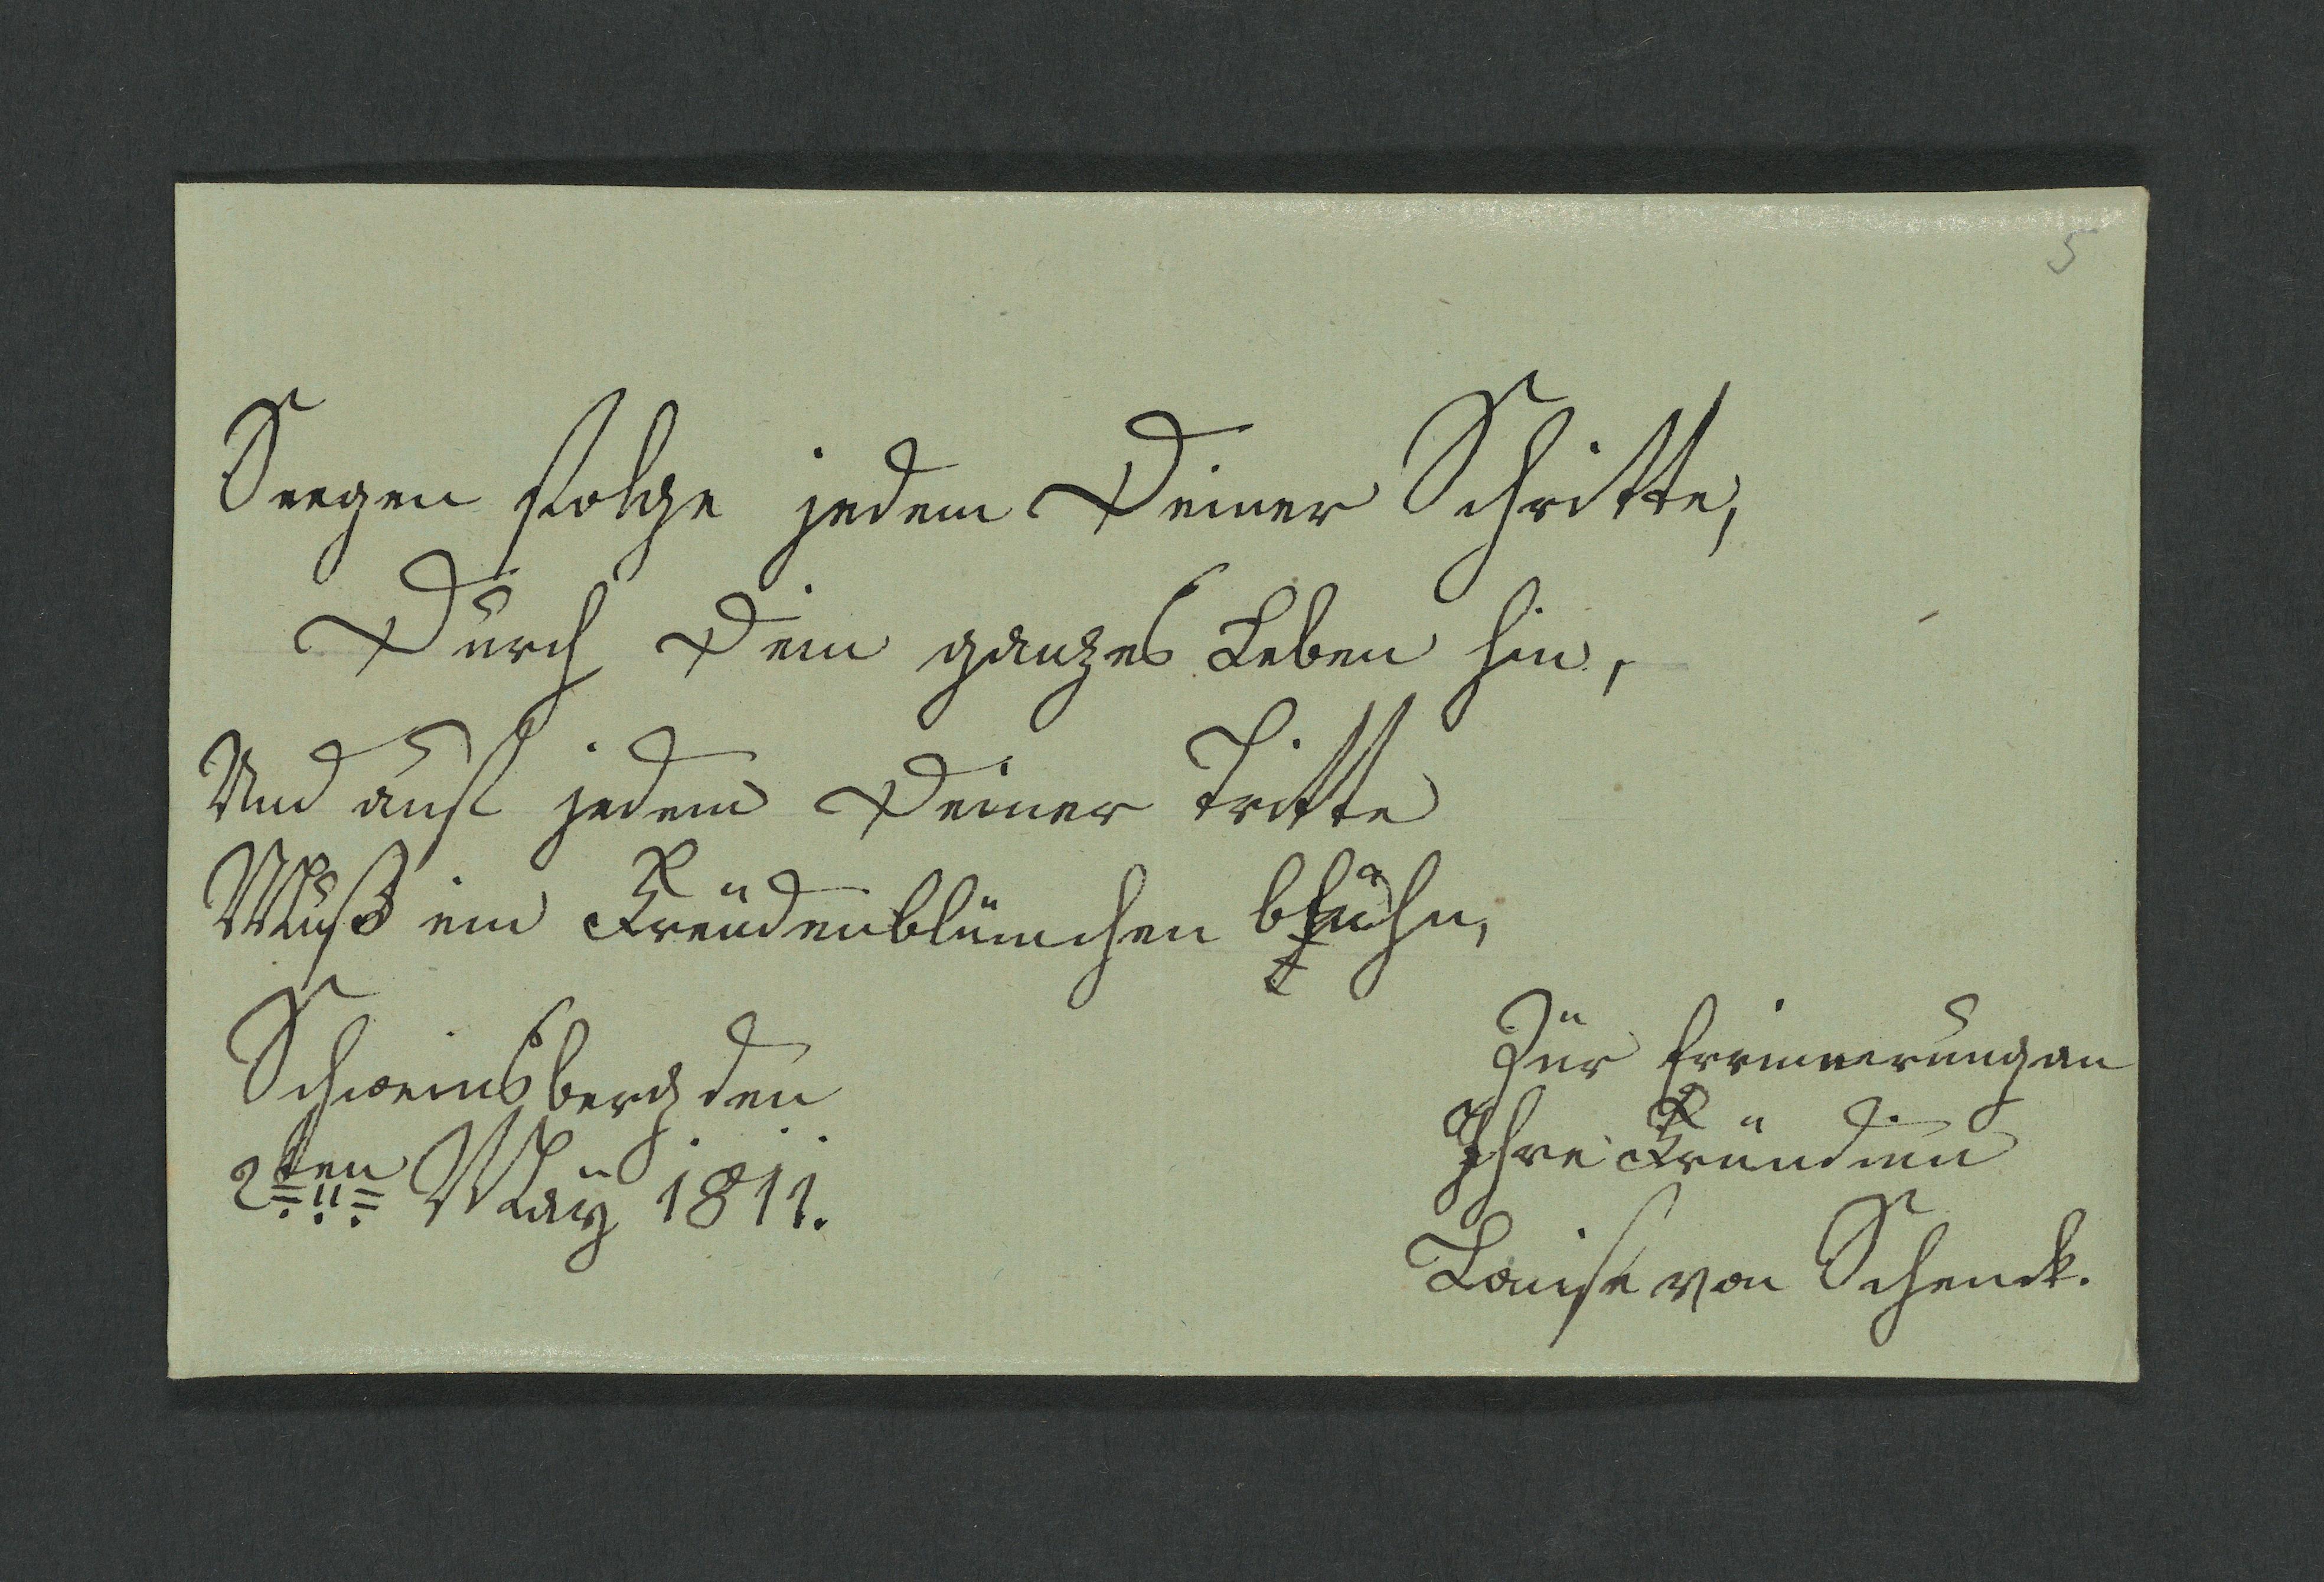 5
Seegen folge jedem Deiner Schritte,
Durch Dein ganzes Leben hin,
Und auf jedem Deiner Tritte
Muß ein Freudenblümchen blühn,
Schweinsberg den
2ten May 1811.
Zur Errinnerung an
Ihre Freundinn
Louise von Schenck.